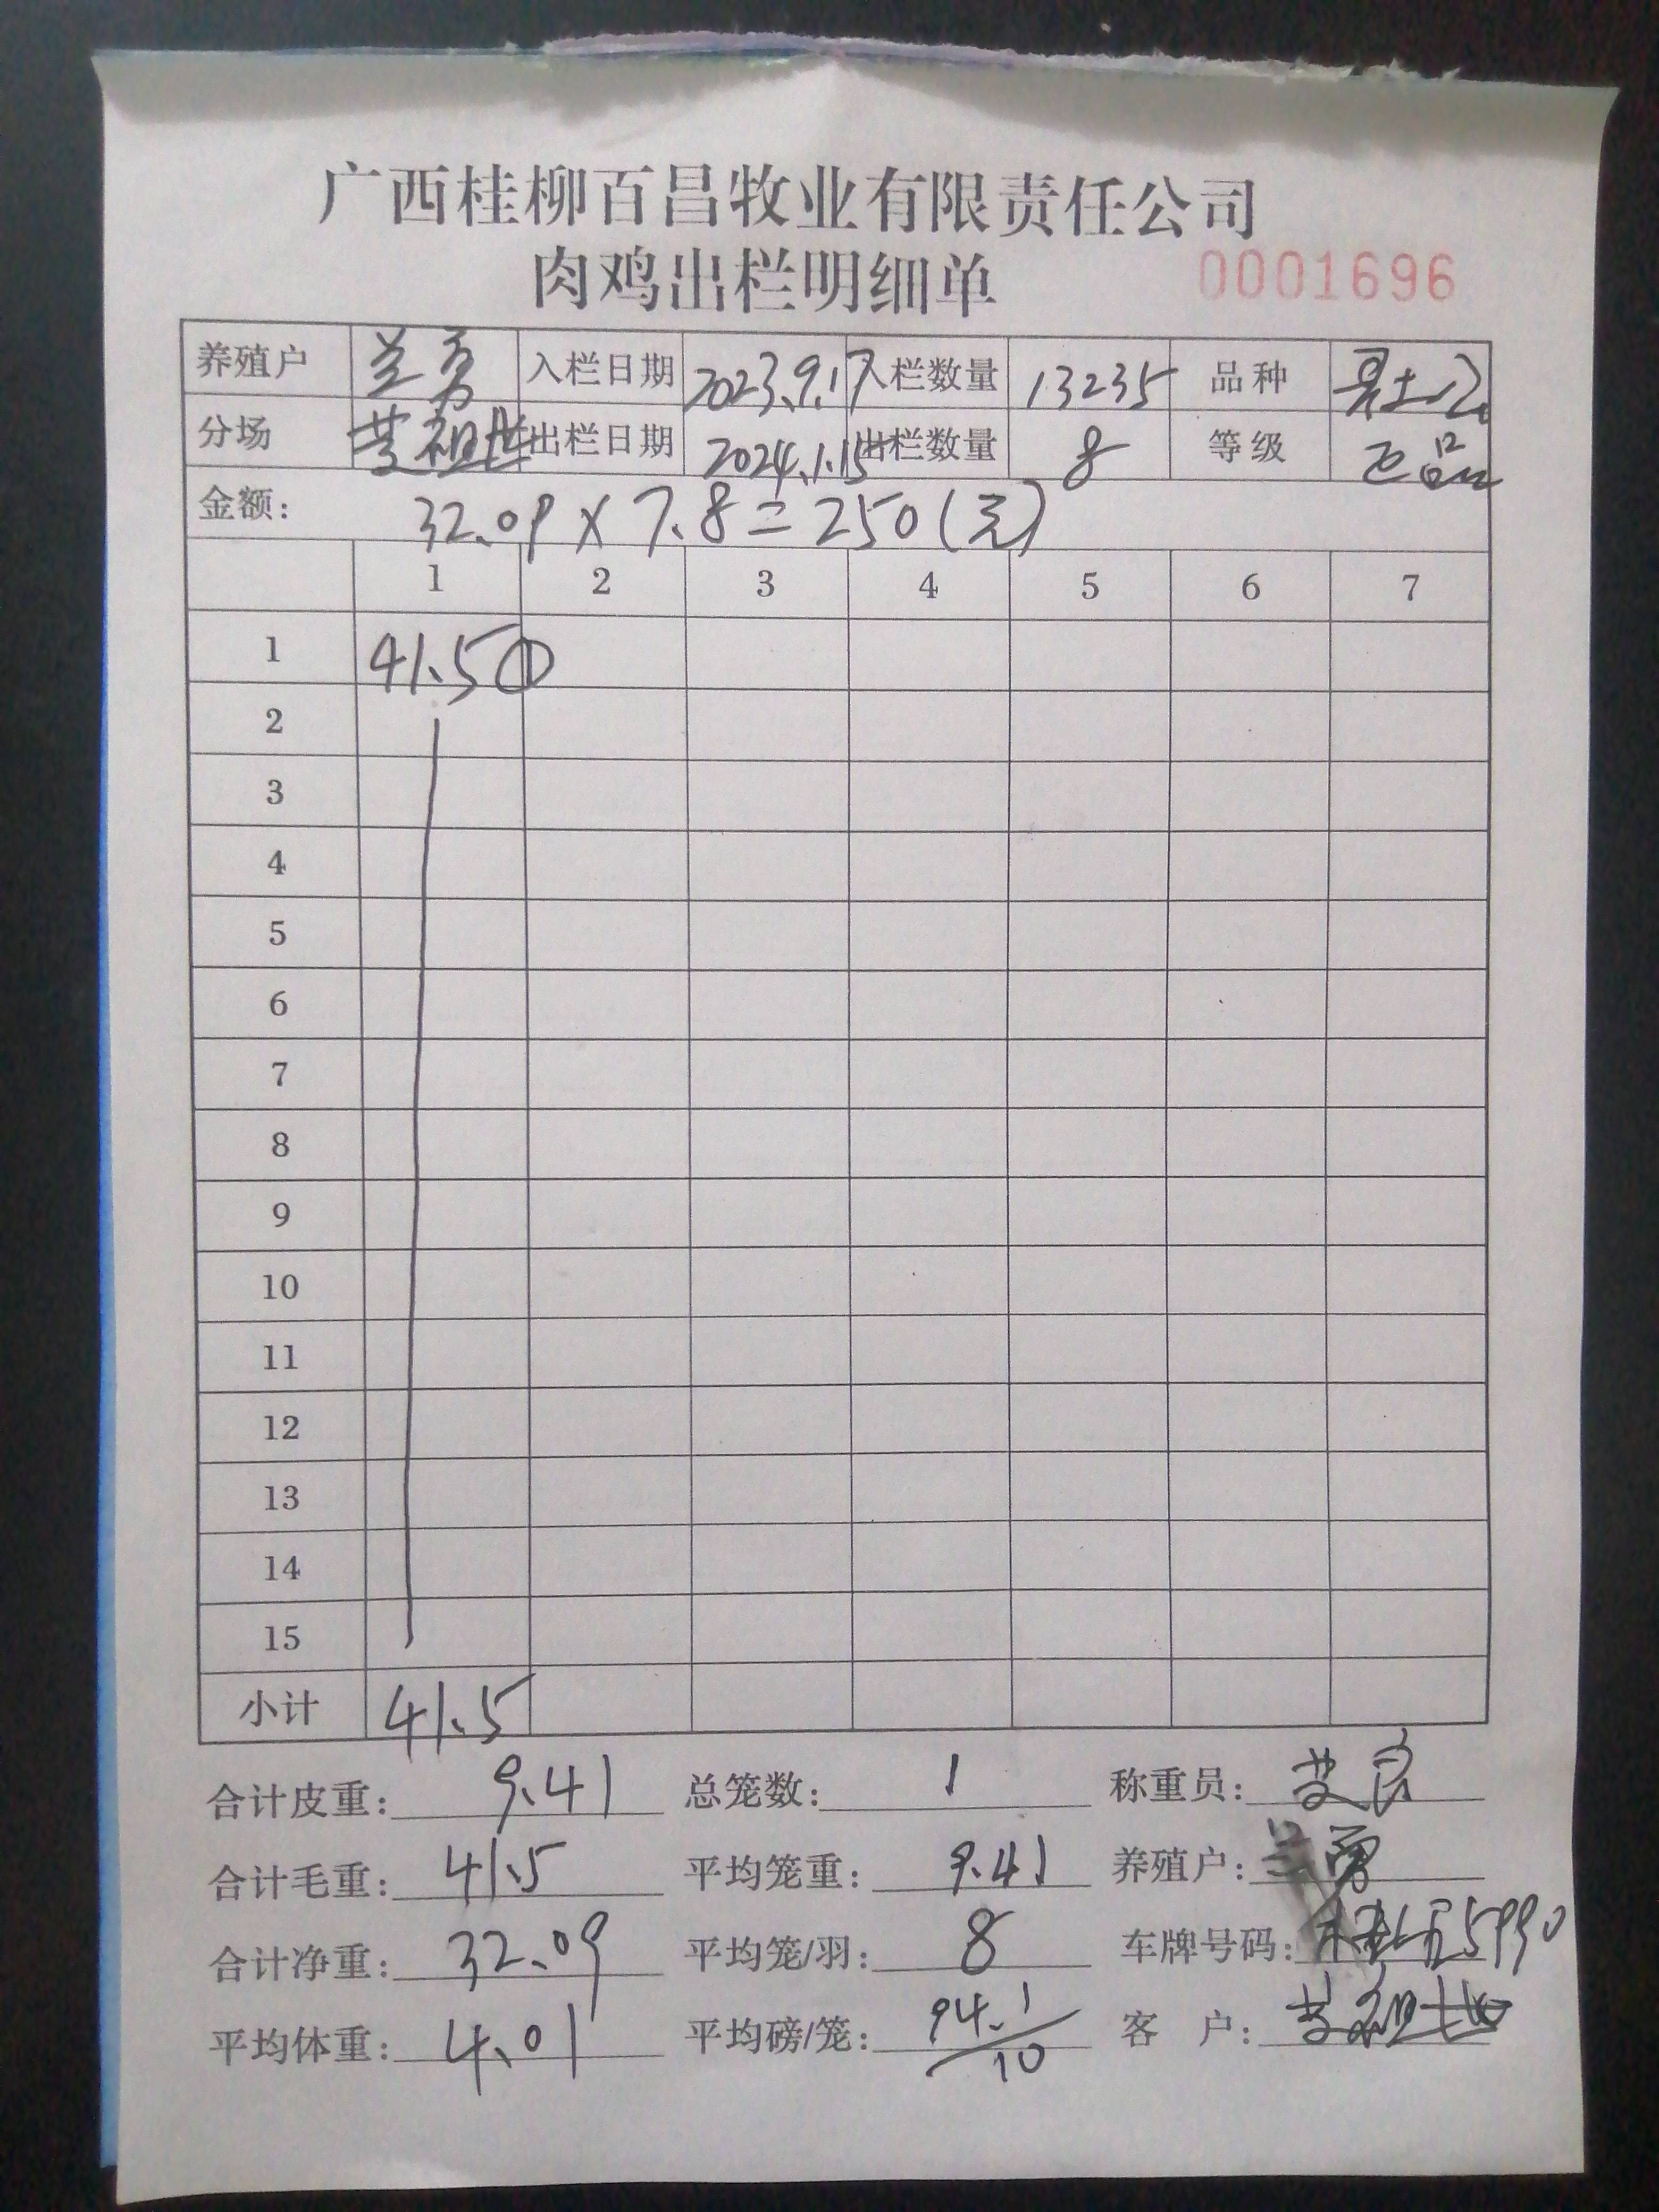 广西桂柳百昌牧业有限责任公司
肉鸡出栏明细单 0001696
养殖户 兰勇 入栏日期 2023.9.17 入栏数量 13235 品种
分场 出栏日期 2024.1.15 出栏数量 8 等级 正品
金额: 32.09 x 7.8 = 250(元)
1 2 3 4 5 6 7
1 41.5 ①
2
3
4
5
6
7
8
9
10
11
12
13
14
15
小计 41.5
合计皮重: 9.41 总笼数: 1 称重员:
合计毛重: 41.5 平均笼重: 9.41 养殖户: 兰勇
合计净重: 32.09 平均笼/羽: 8 车牌号码:
平均体重: 4.01 平均磅/笼: 94.1/10 客 户: